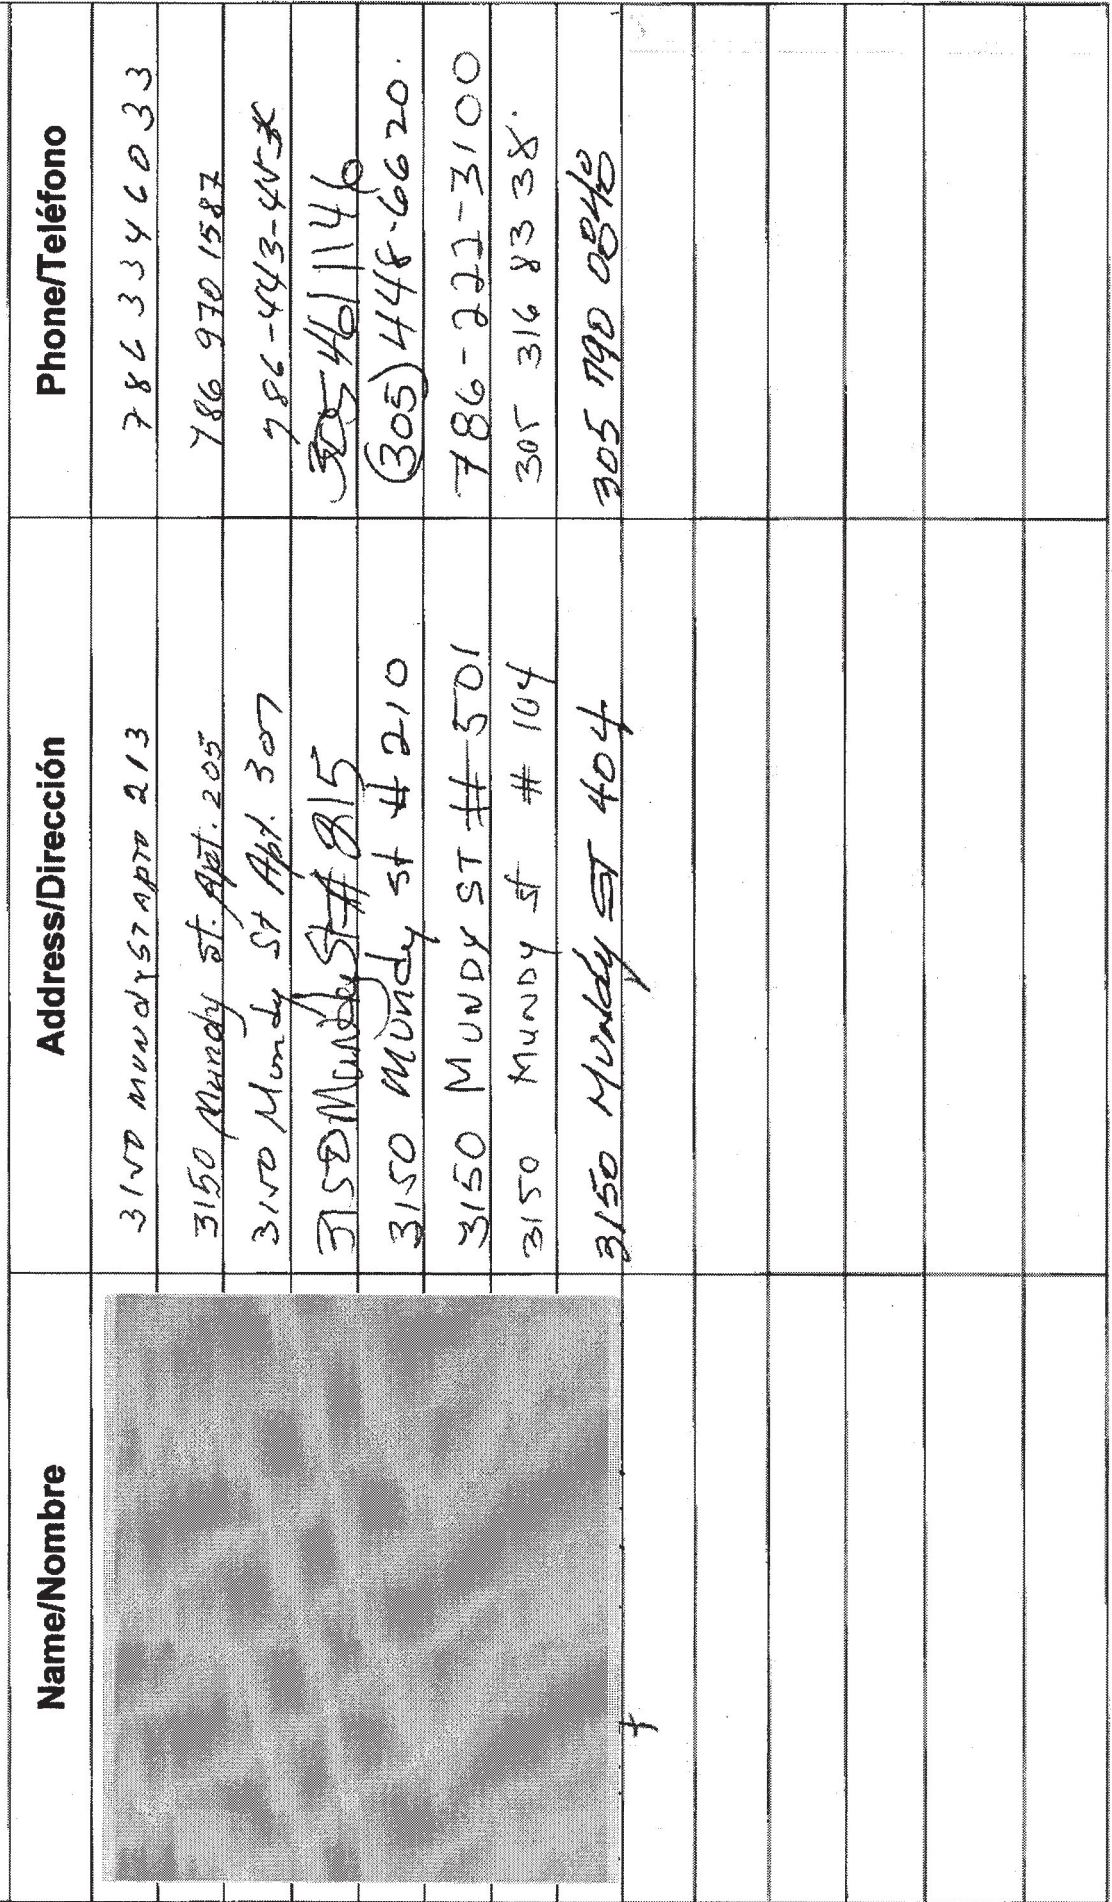 Name/Nombre Address/Dirección Phone/Teléfono
3150 MUNDY ST APTO 213 786 334 6033
3150 Mundy st. Apt. 205 786 970 1587
3150 Mundy St Apt. 307 786-443-
3150 Mundy St # 815 305 461 1146
3150 Mundy st # 210 (305) 448-6620.
3150 MUNDY ST # 501 786-222-3100
3150 MUNDY st # 104 305 316 8338.
3150 Mundy ST 404 305 790